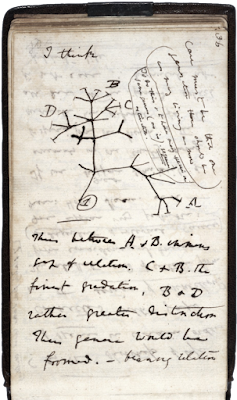 36
I think
Case must be that one
generation then should be
as many living as now
B
D
C
A
1
Thus between A & B. immens
gap of relation. C & B. the
finest gradation, B & D
rather greater distinction
Thus genera would be
formed. — bearing relation